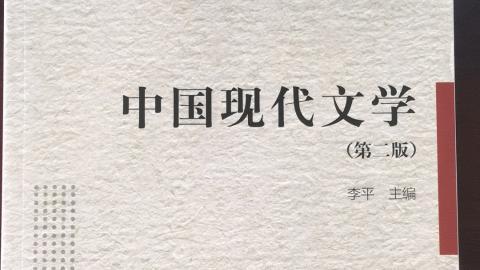 中国现代文学
（第二版）
李平 主编